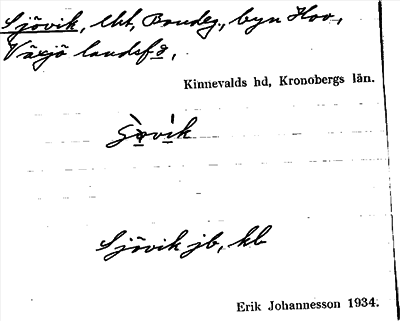 Sjövik, lht, Bondeg., byn Hov,
Växjö landsf⁠ö.,
Kinnevalds hd, Kronobergs län.
Sjövik jb, kb
Erik Johannesson 1934.